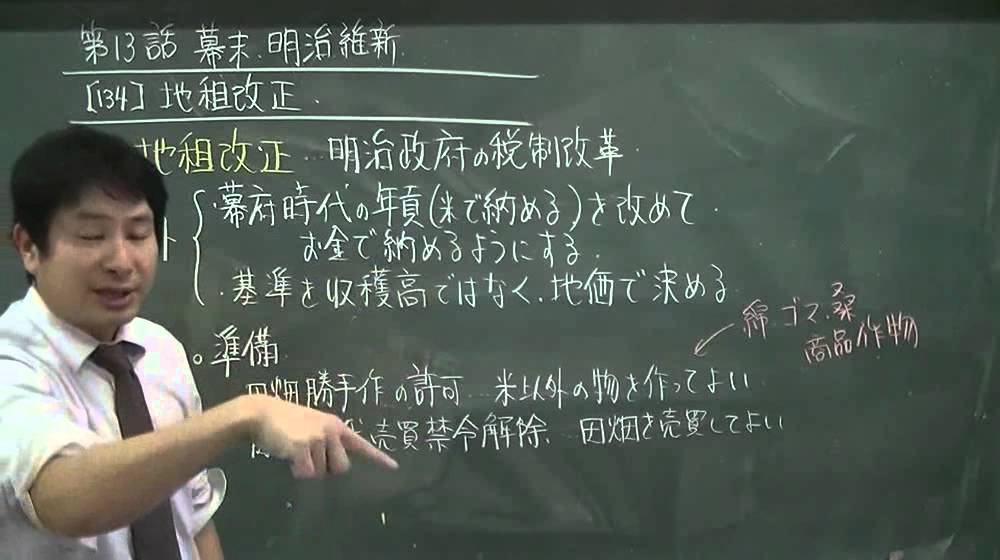 第13話 幕末、明治維新
[134] 地租改正.
地租改正…明治政府の税制改革.
・幕府時代の年貢(米で納める)を改めて.
お金で納めるようにする.
・基準を収穫高ではなく、地価で決める
綿 ゴマ・桑
商品作物
○準備
田畑勝手作の許可…米以外の物を作ってよい
売買禁令解除、田畑を売買してよい